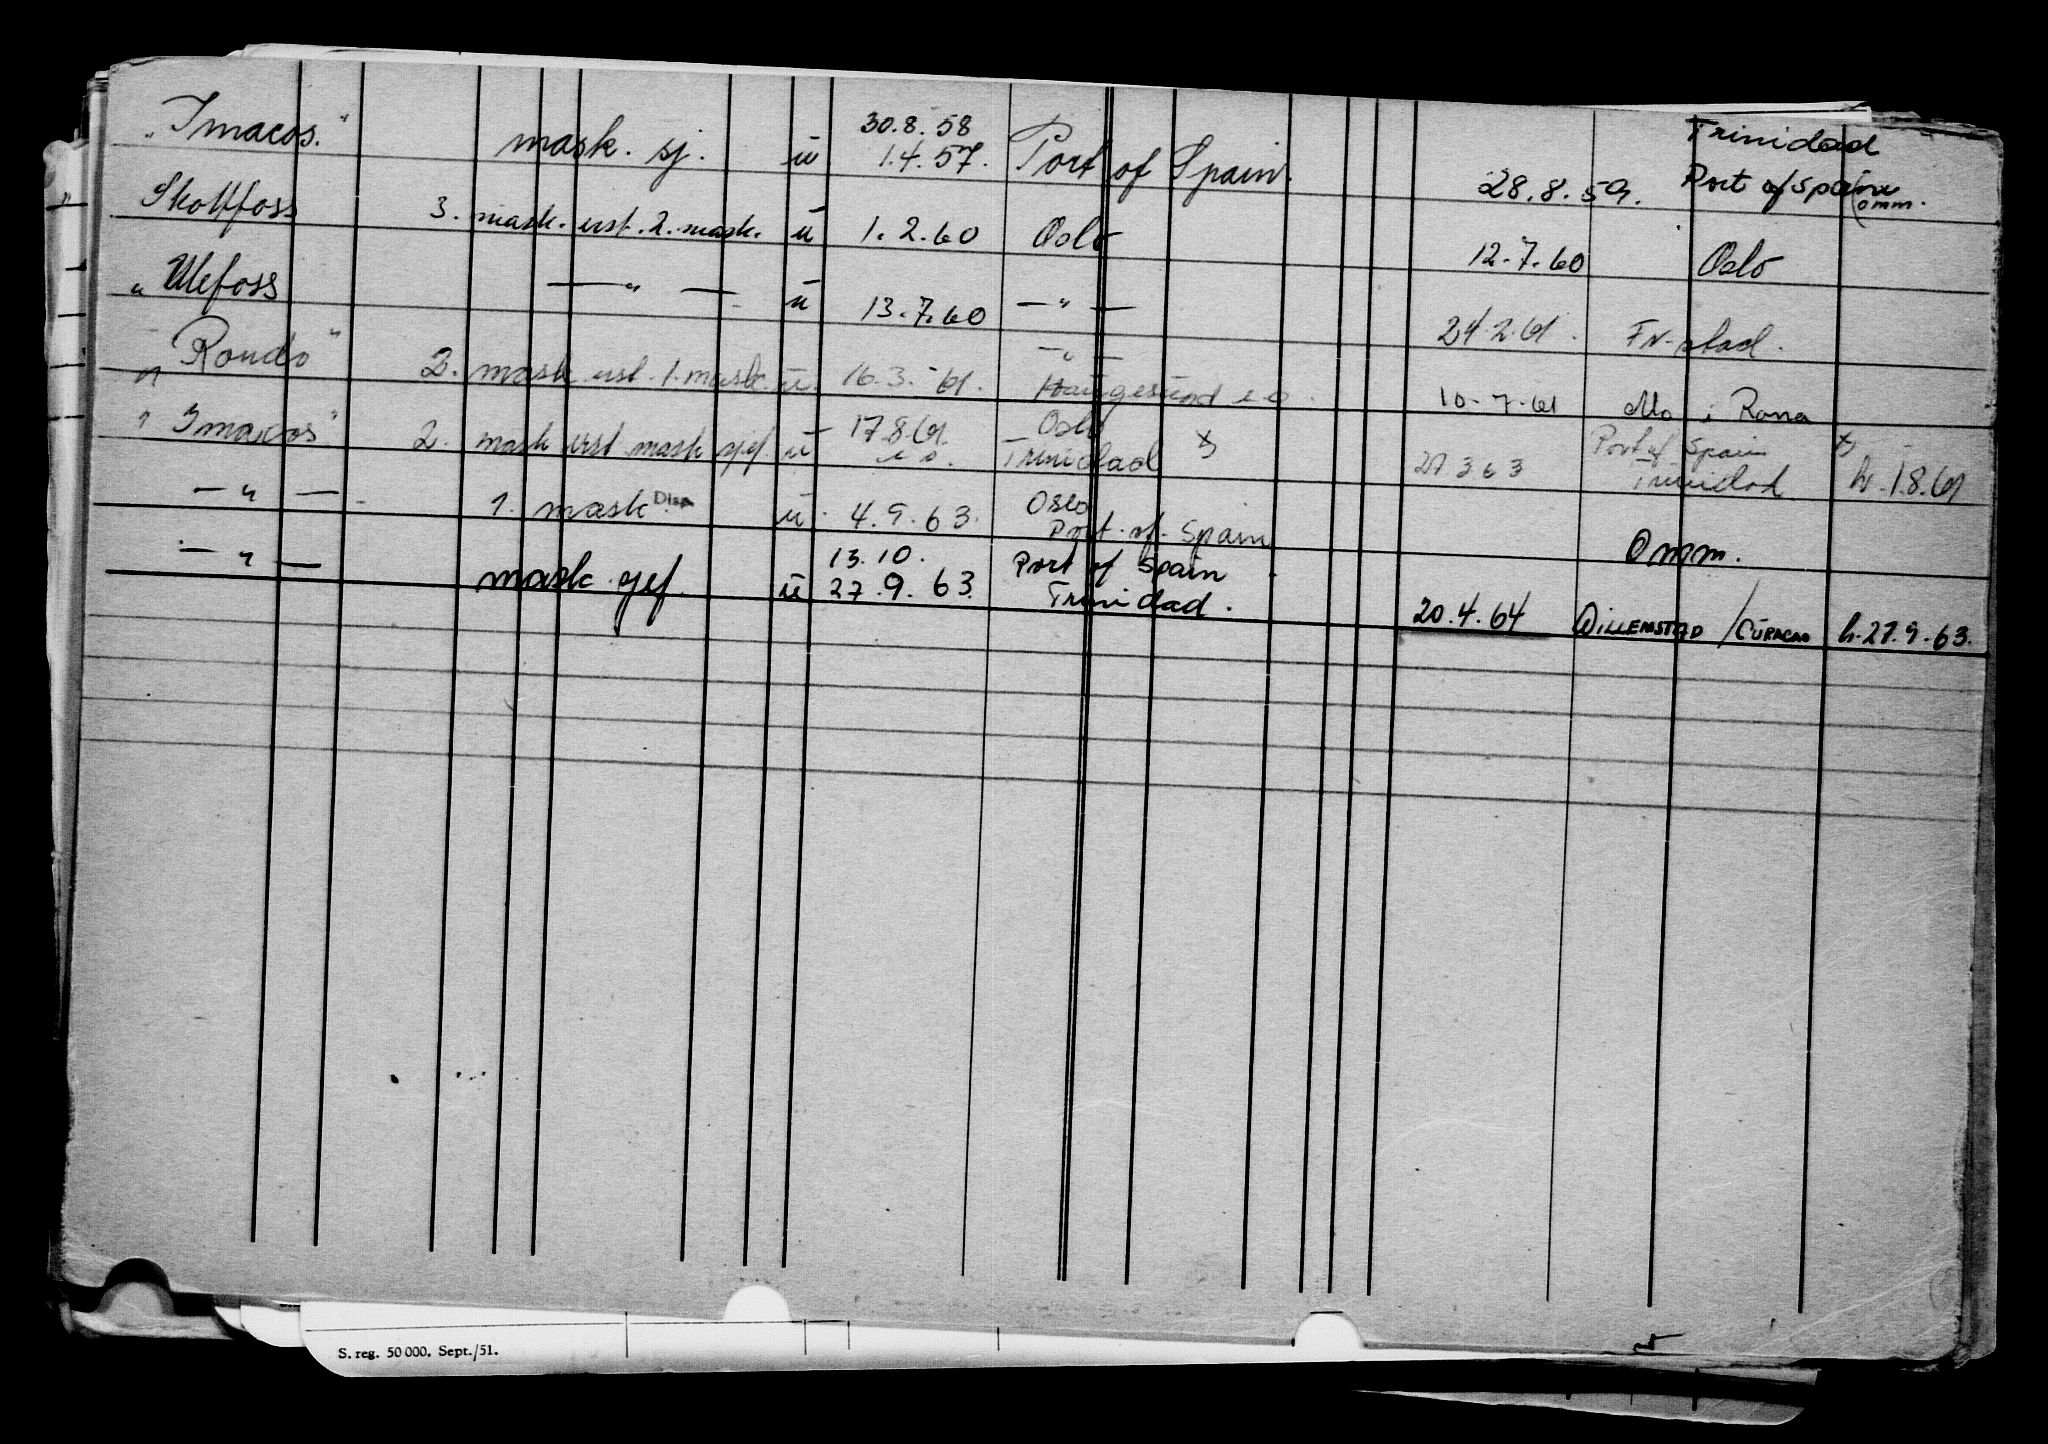 30.8.58 Trinidad
"Imacos." mask. sj. ü 1.4.57. Port of Spain. 28.8.59. Port of Spain omm.
Skotfoss 3. mask. urst. 2. mask. ü 1.2.60 Oslo 12.7.60 Oslo
" Ulefoss — " — ü 13.7.60 — " — 24.2.61. Fr.stad.
— " —
" Rondo" 2. mask urst. 1. mask. ü. 16.3.61. Haugesund e.o. 10.7.61 Mo i Rana
17.8.61. Oslo Port of Spain
" Imacos" 2. mask urst mask sjef ü e o. Trinidad x) 27 3 63 Trinidad x) h. 1.8.61
Oslo
— " — 1. mask Disp ü. 4.9.63. Port of Spain Omm.
13.10. Port of Spain
— " — mask. sjef. ü 27.9.63. Trinidad. 20.4.64 WILLEMSTAD / CURACAO h. 27.9.63.
S. reg. 50 000. Sept./51.